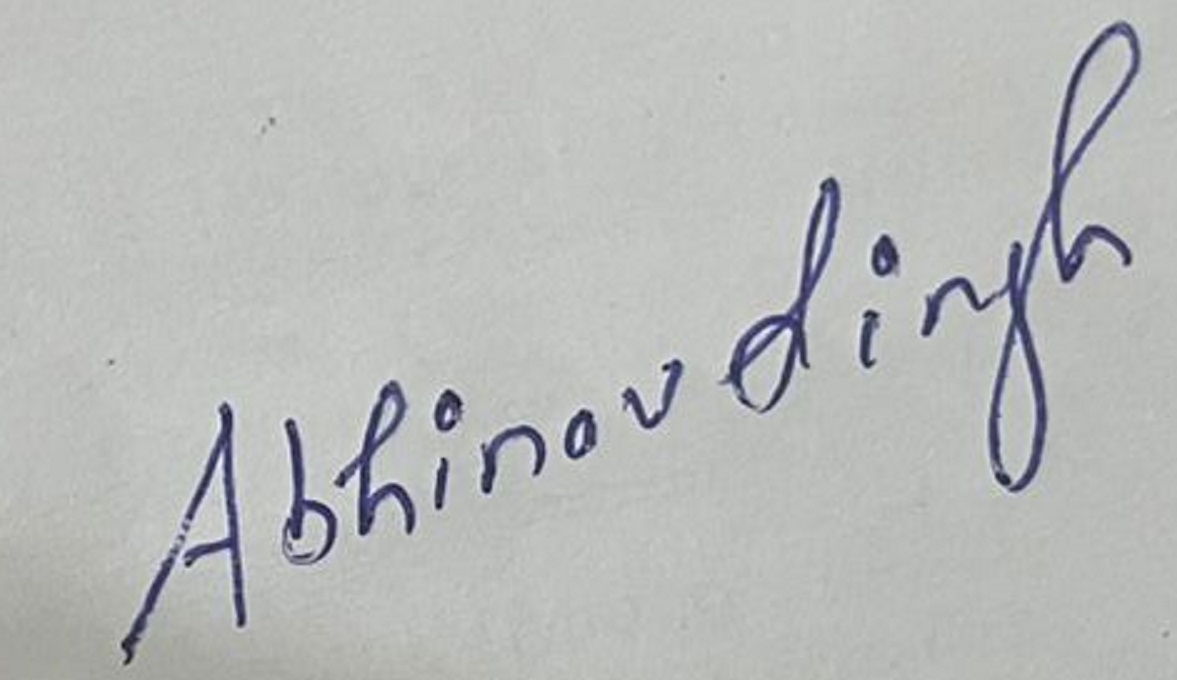 Abhinav Singh